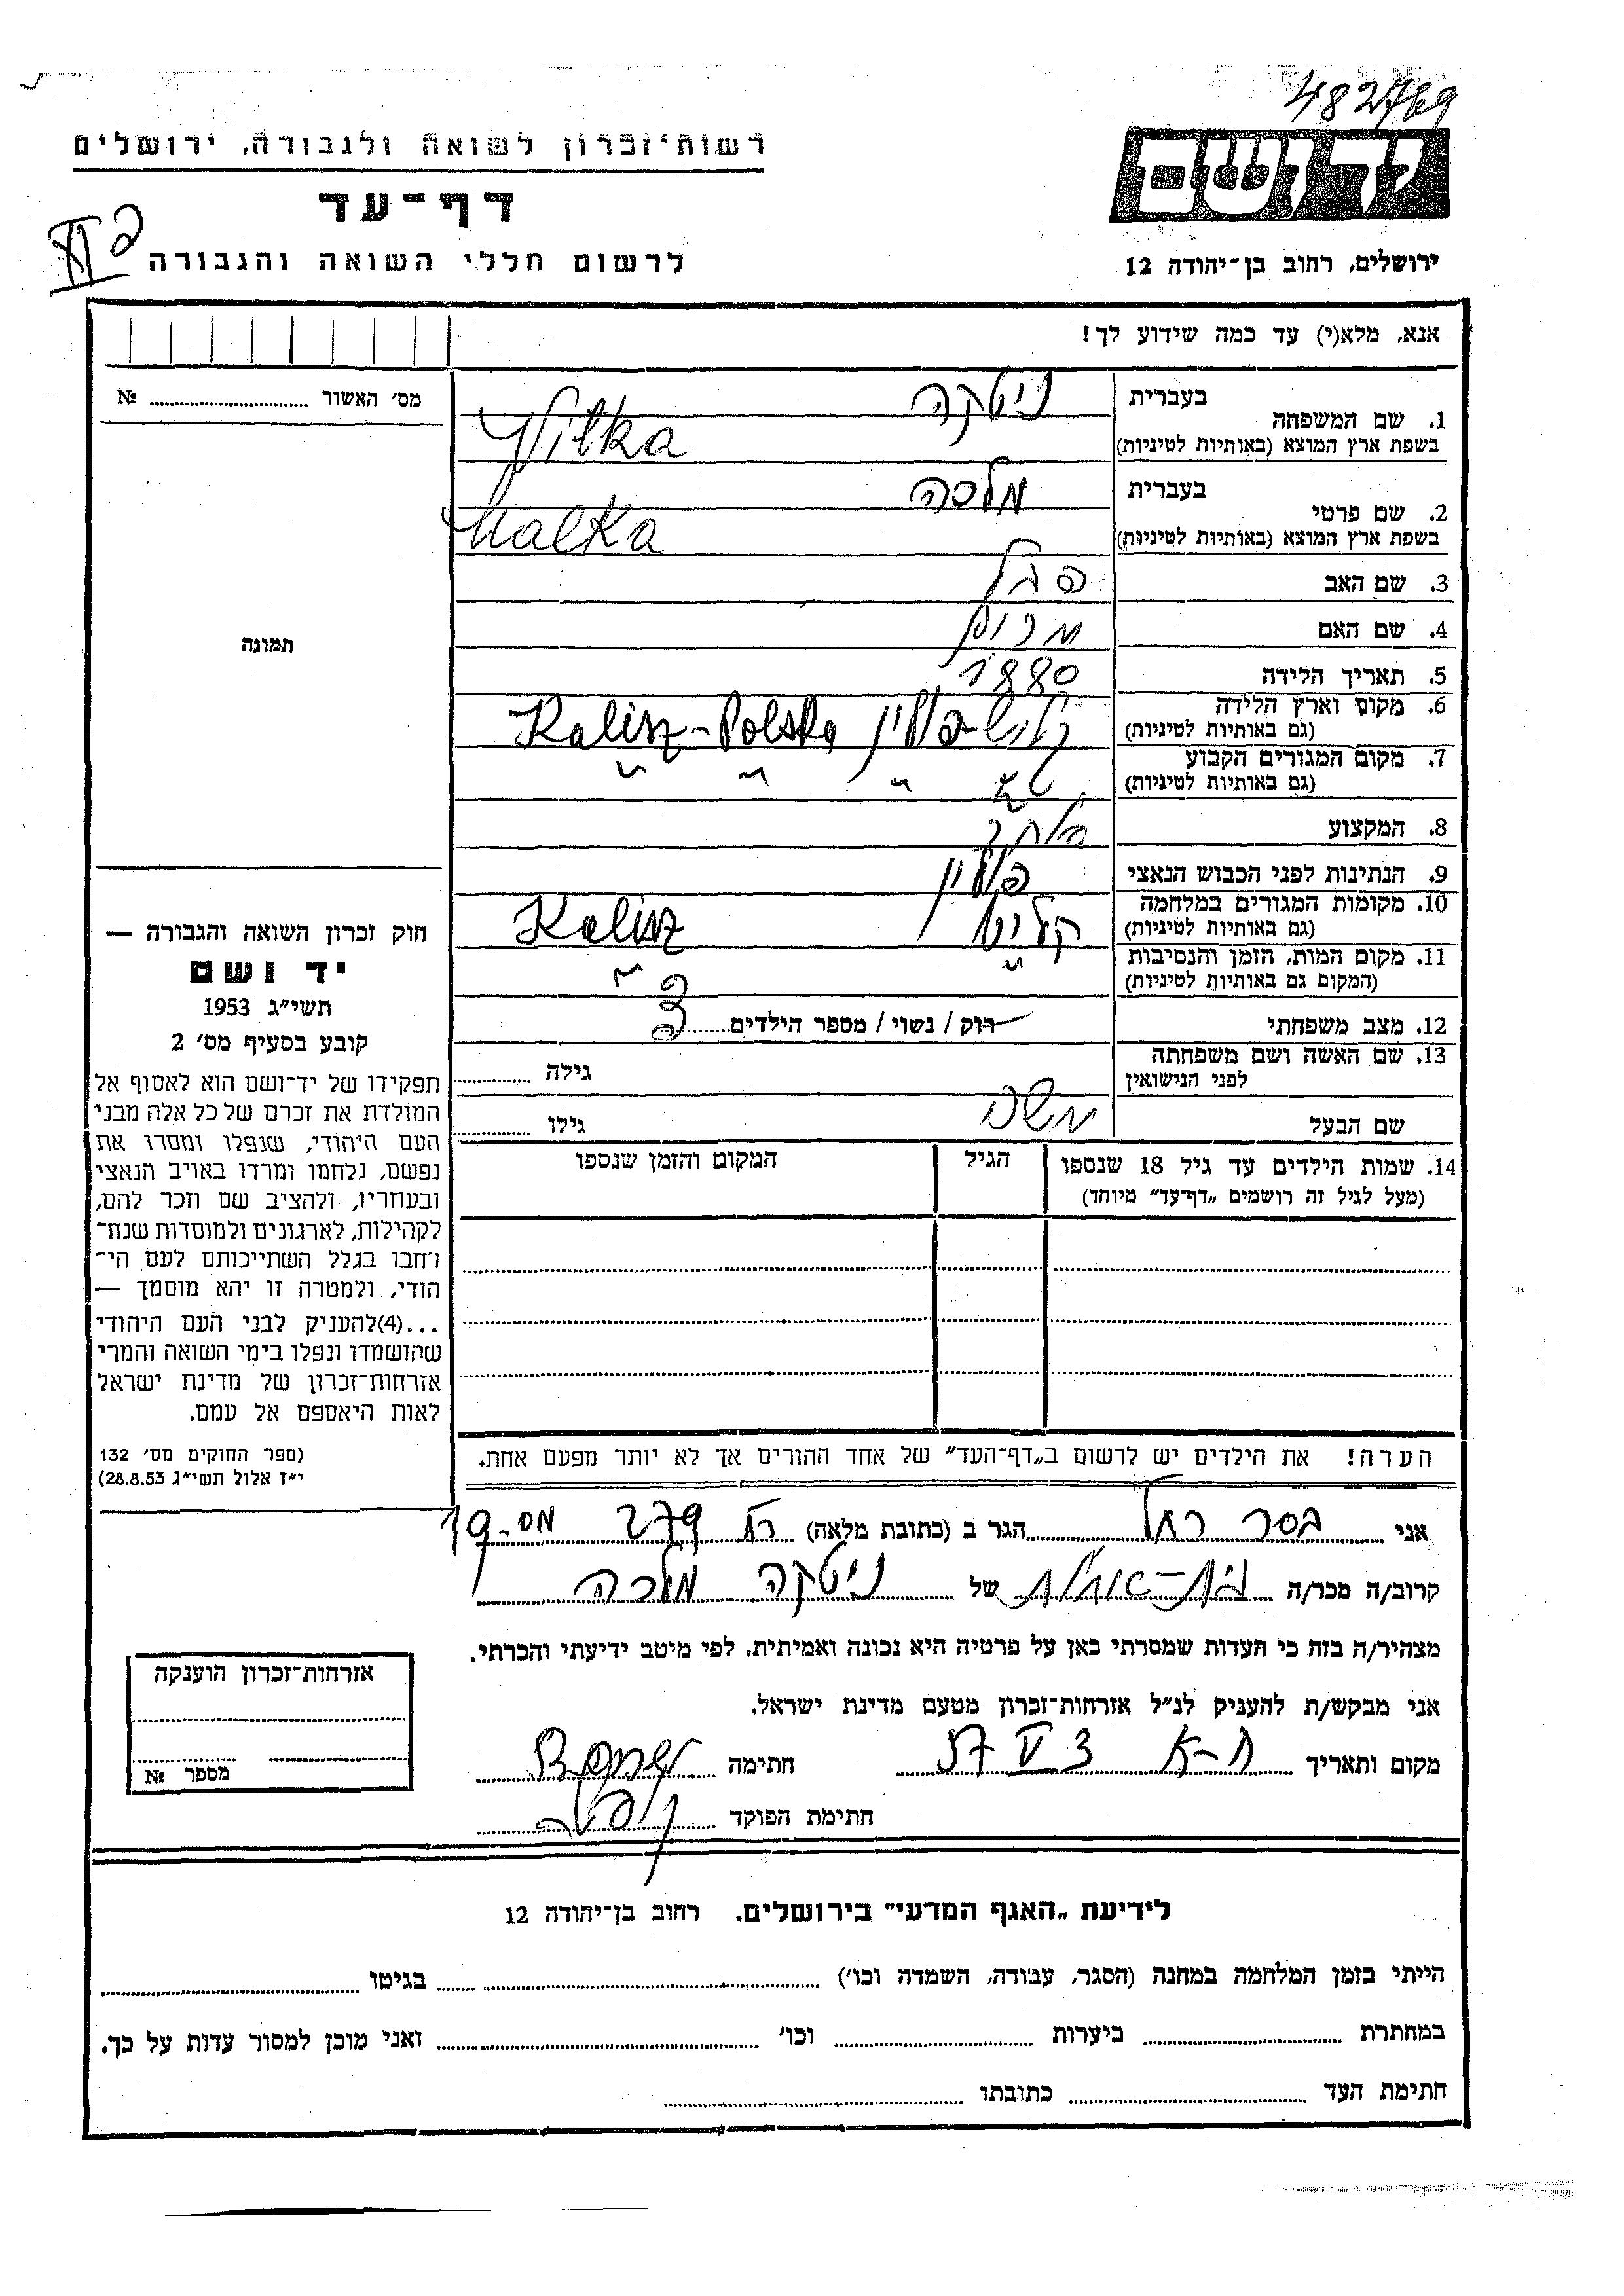 482769
רשות־זכרון לשואה ולגבורה, ירושלים
דף־עד
לרשום חללי השואה והגבורה
יד ושם
ירושלים, רחוב בן־יהודה 12
אנא, מלא(י) עד כמה שידוע לך!
מס׳ האשור № 
1. שם המשפחה בעברית ניטקה
בשפת ארץ המוצא (באותיות לטיניות) Nitka
2. שם פרטי בעברית מלכה
בשפת ארץ המוצא (באותיות לטיניות) Malka
3. שם האב
4. שם האם מרים
5. תאריך הלידה 1880
6. מקום וארץ הלידה (גם באותיות לטיניות) קליש־פולין Kalisz-Polska
7. מקום המגורים הקבוע (גם באותיות לטיניות) " " "
8. המקצוע
9. הנתינות לפני הכבוש הנאצי פולין
10. מקומות המגורים במלחמה (גם באותיות לטיניות) קליש Kalisz
11. מקום המות, הזמן והנסיבות (המקום גם באותיות לטיניות) " "
12. מצב משפחתי רוק / נשוי / מספר הילדים 3
13. שם האשה ושם משפחתה לפני הנישואין גילה
שם הבעל משה גילו
14. שמות הילדים עד גיל 18 שנספו הגיל המקום והזמן שנספו
(מעל לגיל זה רושמים „דף־עד״ מיוחד)
תמונה
חוק זכרון השואה והגבורה —
יד ושם
תשי״ג 1953
קובע בסעיף מס׳ 2
תפקידו של יד־ושם הוא לאסוף אל
המולדת את זכרם של כל אלה מבני
העם היהודי, שנפלו ומסרו את
נפשם, נלחמו ומרדו באויב הנאצי
ובעוזריו, ולהציב שם וזכר להם,
לקהילות, לארגונים ולמוסדות שנח־
רחבו בגלל השתייכותם לעם הי־
הודי, ולמטרה זו יהא מוסמך —
...(4)להעניק לבני העם היהודי
שהושמדו ונפלו בימי השואה והמרי
אזרחות־זכרון של מדינת ישראל
לאות היאספם אל עמם.
(ספר החוקים מס׳ 132
י״ז אלול תשי״ג 28.8.53)
הערה! את הילדים יש לרשום ב„דף־העד״ של אחד ההורים אך לא יותר מפעם אחת.
אני בסר רחל הגר ב (כתובת מלאה) 279
קרוב/ה מכר/ה בת־אחות של ניטקה מלכה
מצהיר/ה בזה כי העדות שמסרתי כאן על פרטיה היא נכונה ואמיתית, לפי מיטב ידיעתי והכרתי.
אני מבקש/ת להעניק לנ״ל אזרחות־זכרון מטעם מדינת ישראל.
מקום ותאריך ת-א 3 V 57 חתימה
חתימת הפוקד
אזרחות־זכרון הוענקה
מספר №
לידיעת „האגף המדעי״ בירושלים. רחוב בן־יהודה 12
הייתי בזמן המלחמה במחנה (הסגר, עבודה, השמדה וכו׳) בגיטו
במחתרת ביערות וכו׳ ואני מוכן למסור עדות על כך.
חתימת העד כתובתו